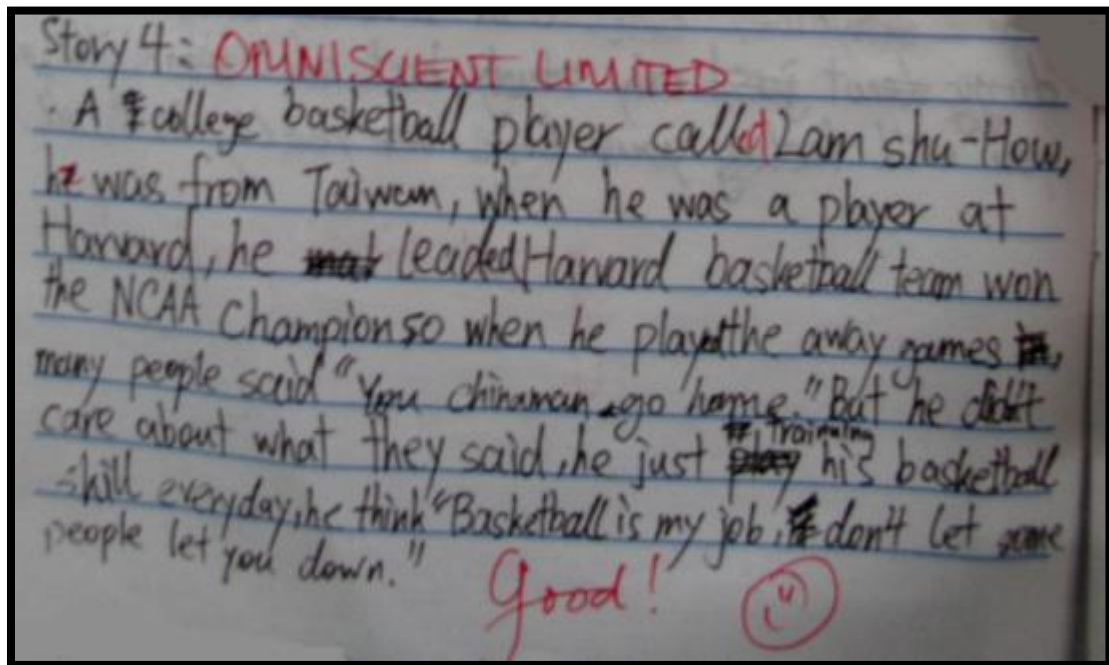 Story 4: OMNISCIENT LIMITED
A college basketball player called Lam shu-How,
he was from Taiwan, when he was a player at
Harvard, he leaded Harvard basketball team won
the NCAA Champion so when he played the away games,
many people said "You chinaman go home." But he didn't
care about what they said, he just Trainning his basketball
skill everyday, he think "Basketball is my job, don't let some
people let you down."
Good!